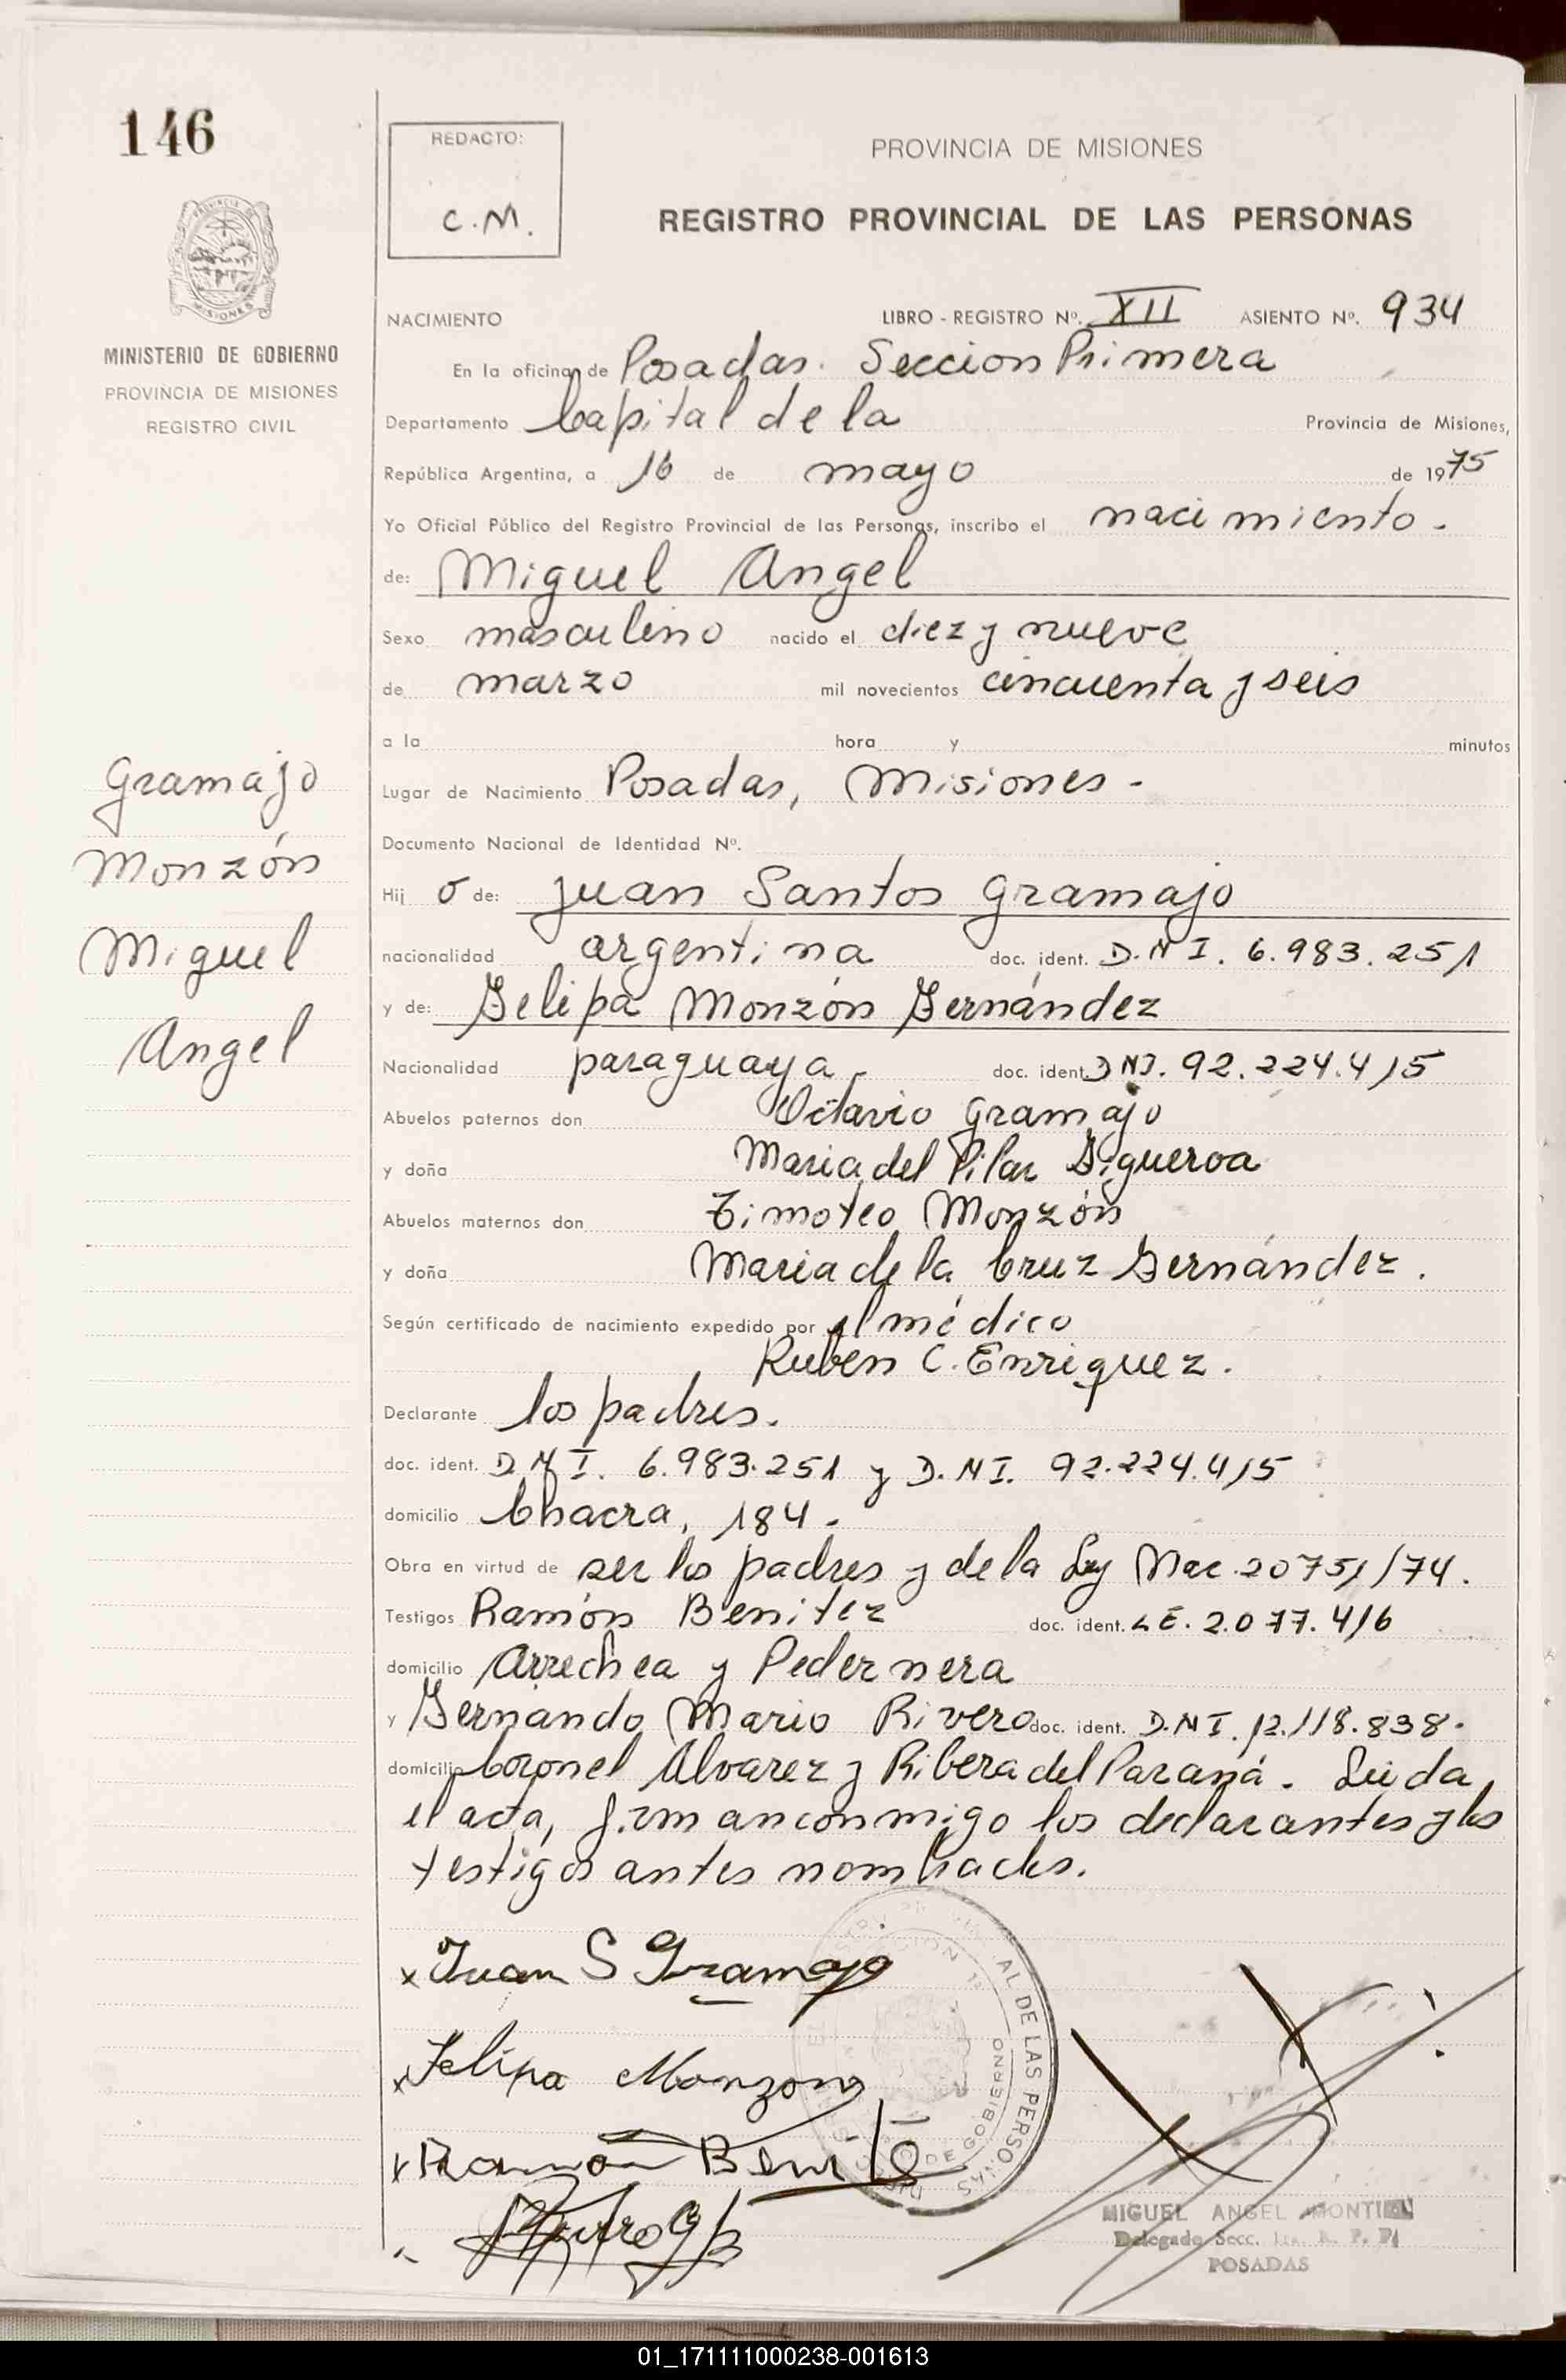 146
REDACTO:
C.M.
PROVINCIA DE MISIONES
REGISTRO PROVINCIAL DE LAS PERSONAS
MISIONES
MINISTERIO DE GOBIERNO
PROVINCIA DE MISIONES
REGISTRO CIVIL
NACIMIENTO LIBRO - REGISTRO Nº. XII ASIENTO Nº. 934
En la oficina de Posadas. Seccion Primera
Departamento Capital de la Provincia de Misiones,
República Argentina, a 16 de mayo de 1975
Yo Oficial Público del Registro Provincial de las Personas, inscribo el nacimiento.
de: Miguel Angel
Sexo masculino nacido el diez y nueve
de marzo mil novecientos cincuenta y seis
a la hora y minutos
Lugar de Nacimiento Posadas, Misiones -
Documento Nacional de Identidad Nº.
Gramajo
Monzón
Miguel
Angel
Hij o de: Juan Santos Gramajo
nacionalidad argentina doc. ident. D.N I. 6.983.251
y de: Felipa Monzón Fernández
Nacionalidad paraguaya doc. ident. DNI. 92.224.415
Abuelos paternos don Octavio Gramajo
y doña Maria del Pilar Figueroa
Abuelos maternos don Timoteo Monzón
y doña Maria de la Cruz Fernández.
Según certificado de nacimiento expedido por el médico
Ruben C. Enriquez.
Declarante los padres.
doc. ident. D N I. 6.983.251 y D.N I. 92.224.415
domicilio Chacra, 184.
Obra en virtud de ser los padres y de la Ley Nac. 20751/74.
Testigos Ramón Benitez doc. ident. L E. 2.077.416
domicilio Arrechea y Pedernera
y Fernando Mario Rivero doc. ident. D.N I. 12.118.838.
domicilio Coronel Alvarez y Ribera del Paraná. Leida
el acta, firman conmigo los declarantes y los
testigos antes nombrados.
x Juan S Gramajo
x Felipa Monzon
x Ramon Benite
AL DE LAS PERSONAS
DE GOBIERNO
MIGUEL ANGEL MONTIEL
Delegado Secc. 1ra. R. P. P.
POSADAS
01_171111000238-001613